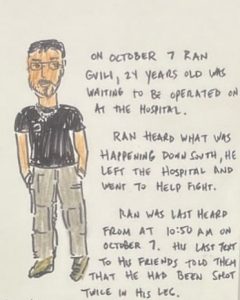 ON OCTOBER 7 RAN
GVILI, 24 YEARS OLD WAS
WAITING TO BE OPERATED ON
AT THE HOSPITAL.
RAN HEARD WHAT WAS
HAPPENING DOWN SOUTH, HE
LEFT THE HOSPITAL AND
WENT TO HELP FIGHT.
RAN WAS LAST HEARD
FROM AT 10:50 AM ON
OCTOBER 7. HIS LAST TEXT
TO HIS FRIENDS TOLD THEM
THAT HE HAD BEEN SHOT
TWICE IN HIS LEG.